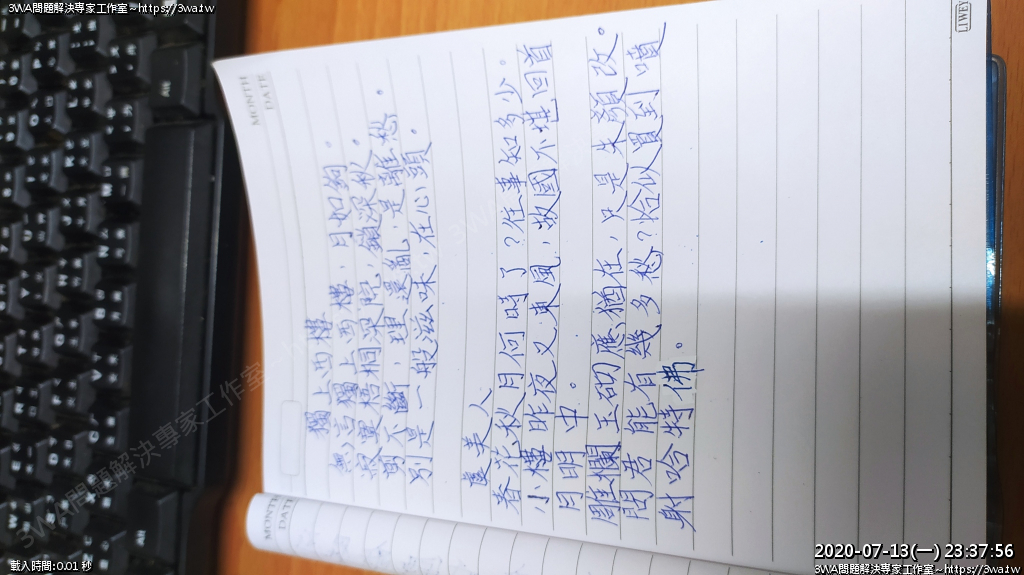 3WA問題解決專家工作室~https://3wa.tw
MONTH
DATE
獨上西樓
無言獨上西樓,月如鉤。
寂寞梧桐深院,鎖深秋。
剪不斷,理還亂,是離愁。
別是一般滋味,在心頭。
虞美人
春花秋月何時了?往事知多少。
小樓昨夜又東風,故國不堪回首
月明中。
雕欄玉砌應猶在,只是朱顏改。
問君能有幾多愁?恰似買到噴
射哈特佛。
MONTH
DATE
3WA問題解決專家工作室
載入時間:0.01 秒
2020-07-13(一) 23:37:56
3WA問題解決專家工作室~https://3wa.tw